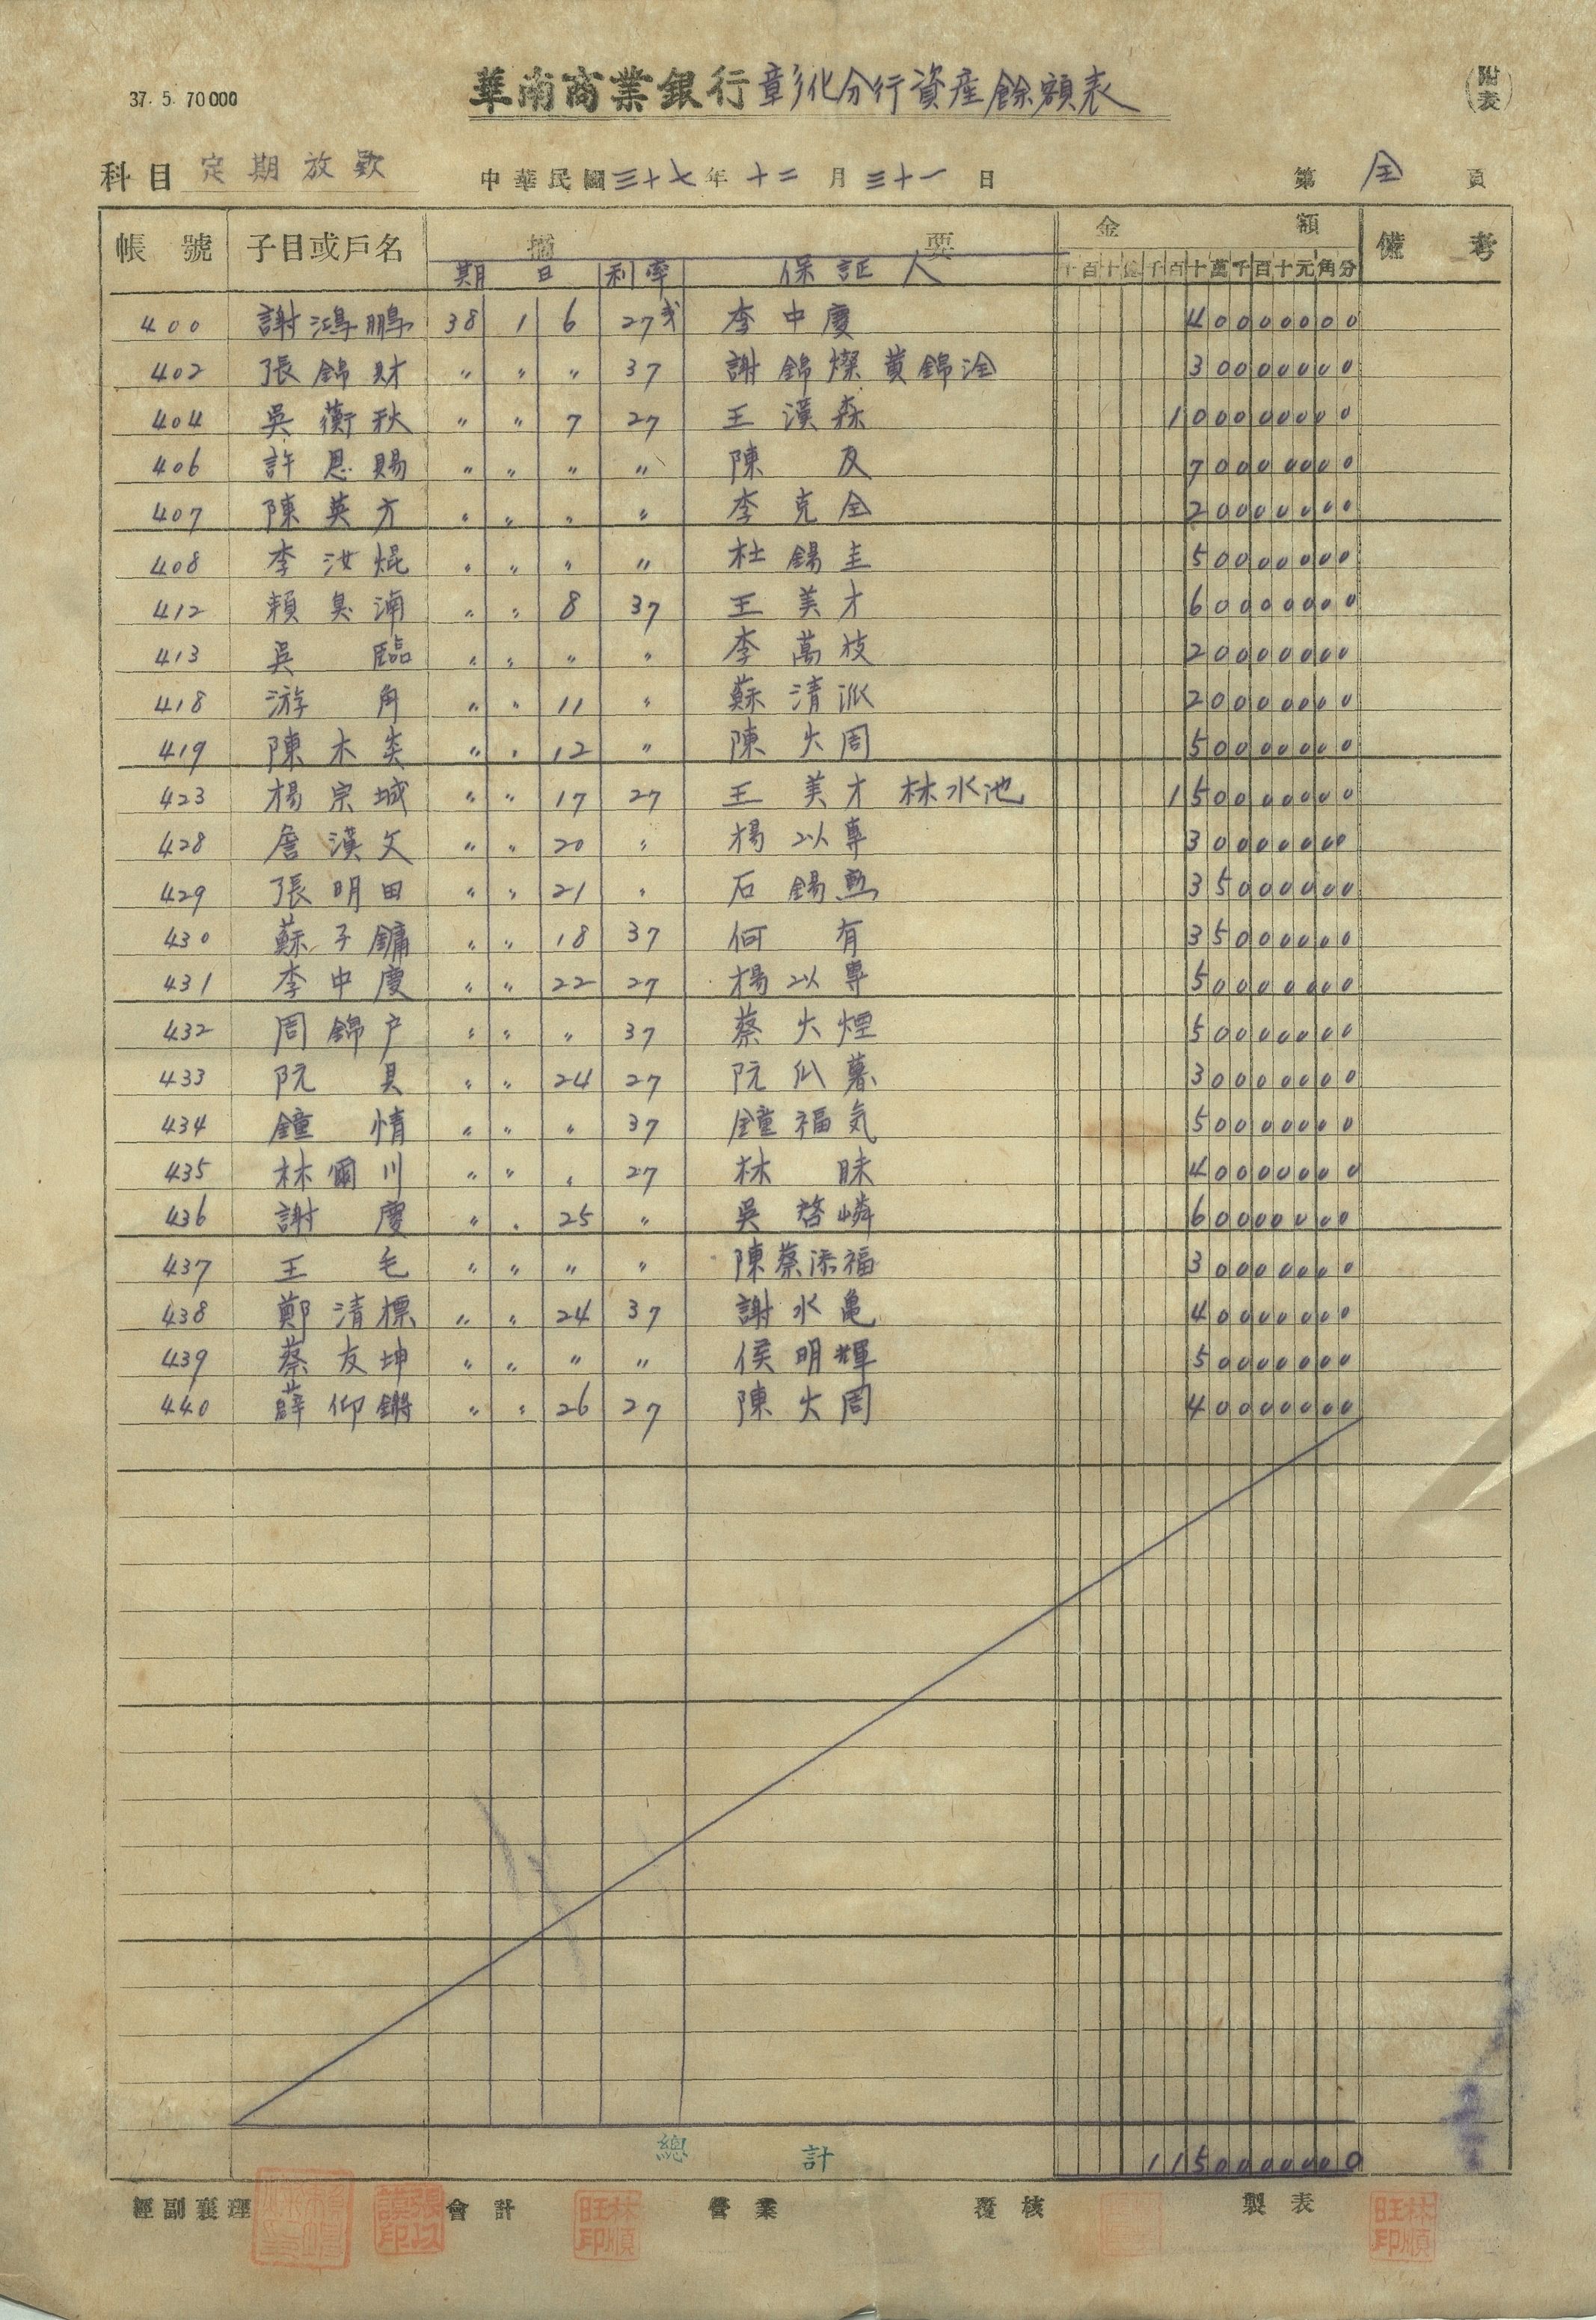 37. 5. 70000
華南商業銀行彰化分行資產餘額表
(附表)
科目 定期放款 中華民國三十七年十二月三十一日 第全頁
帳號 子目或戶名 摘要 金額 備考
期日 利率 保証人 千百十億千百十萬千百十元角分
400 謝鴻鵬 38 1 6 27 李中慶 40000000
402 張錦財 〃 〃 〃 37 謝錦燦 黃錦淦 30000000
404 吳蘅秋 〃 〃 7 27 王漢森 100000000
406 許恩賜 〃 〃 〃 〃 陳友 70000000
407 陳英方 〃 〃 〃 〃 李克全 20000000
408 李汝焜 〃 〃 〃 〃 杜錫圭 50000000
412 賴臭湳 〃 〃 8 37 王美才 60000000
413 吳臨 〃 〃 〃 〃 李萬枝 20000000
418 游角 〃 〃 11 〃 蘇清派 20000000
419 陳木炎 〃 〃 12 〃 陳火周 50000000
423 楊宗城 〃 〃 17 27 王美才 林水池 150000000
428 詹漢文 〃 〃 20 〃 楊以專 30000000
429 張明田 〃 〃 21 〃 石錫勳 35000000
430 蘇子鏞 〃 〃 18 37 何有 35000000
431 李中慶 〃 〃 22 27 楊以專 50000000
432 周錦户 〃 〃 〃 37 蔡火煙 50000000
433 阮具 〃 〃 24 27 阮瓜暮 30000000
434 鐘情 〃 〃 〃 37 鐘福気 50000000
435 林爾川 〃 〃 〃 27 林昧 40000000
436 謝慶 〃 〃 25 〃 吳啓嶙 60000000
437 王毛 〃 〃 〃 〃 陳蔡添福 30000000
438 鄭清標 〃 〃 24 37 謝水亀 40000000
439 蔡友坤 〃 〃 〃 〃 侯明輝 50000000
440 薛仰鏘 〃 〃 26 27 陳火周 40000000
總計 1150000000
經副襄理 會計 營業 覆核 製表
張以謨印 林順旺印 林順旺印